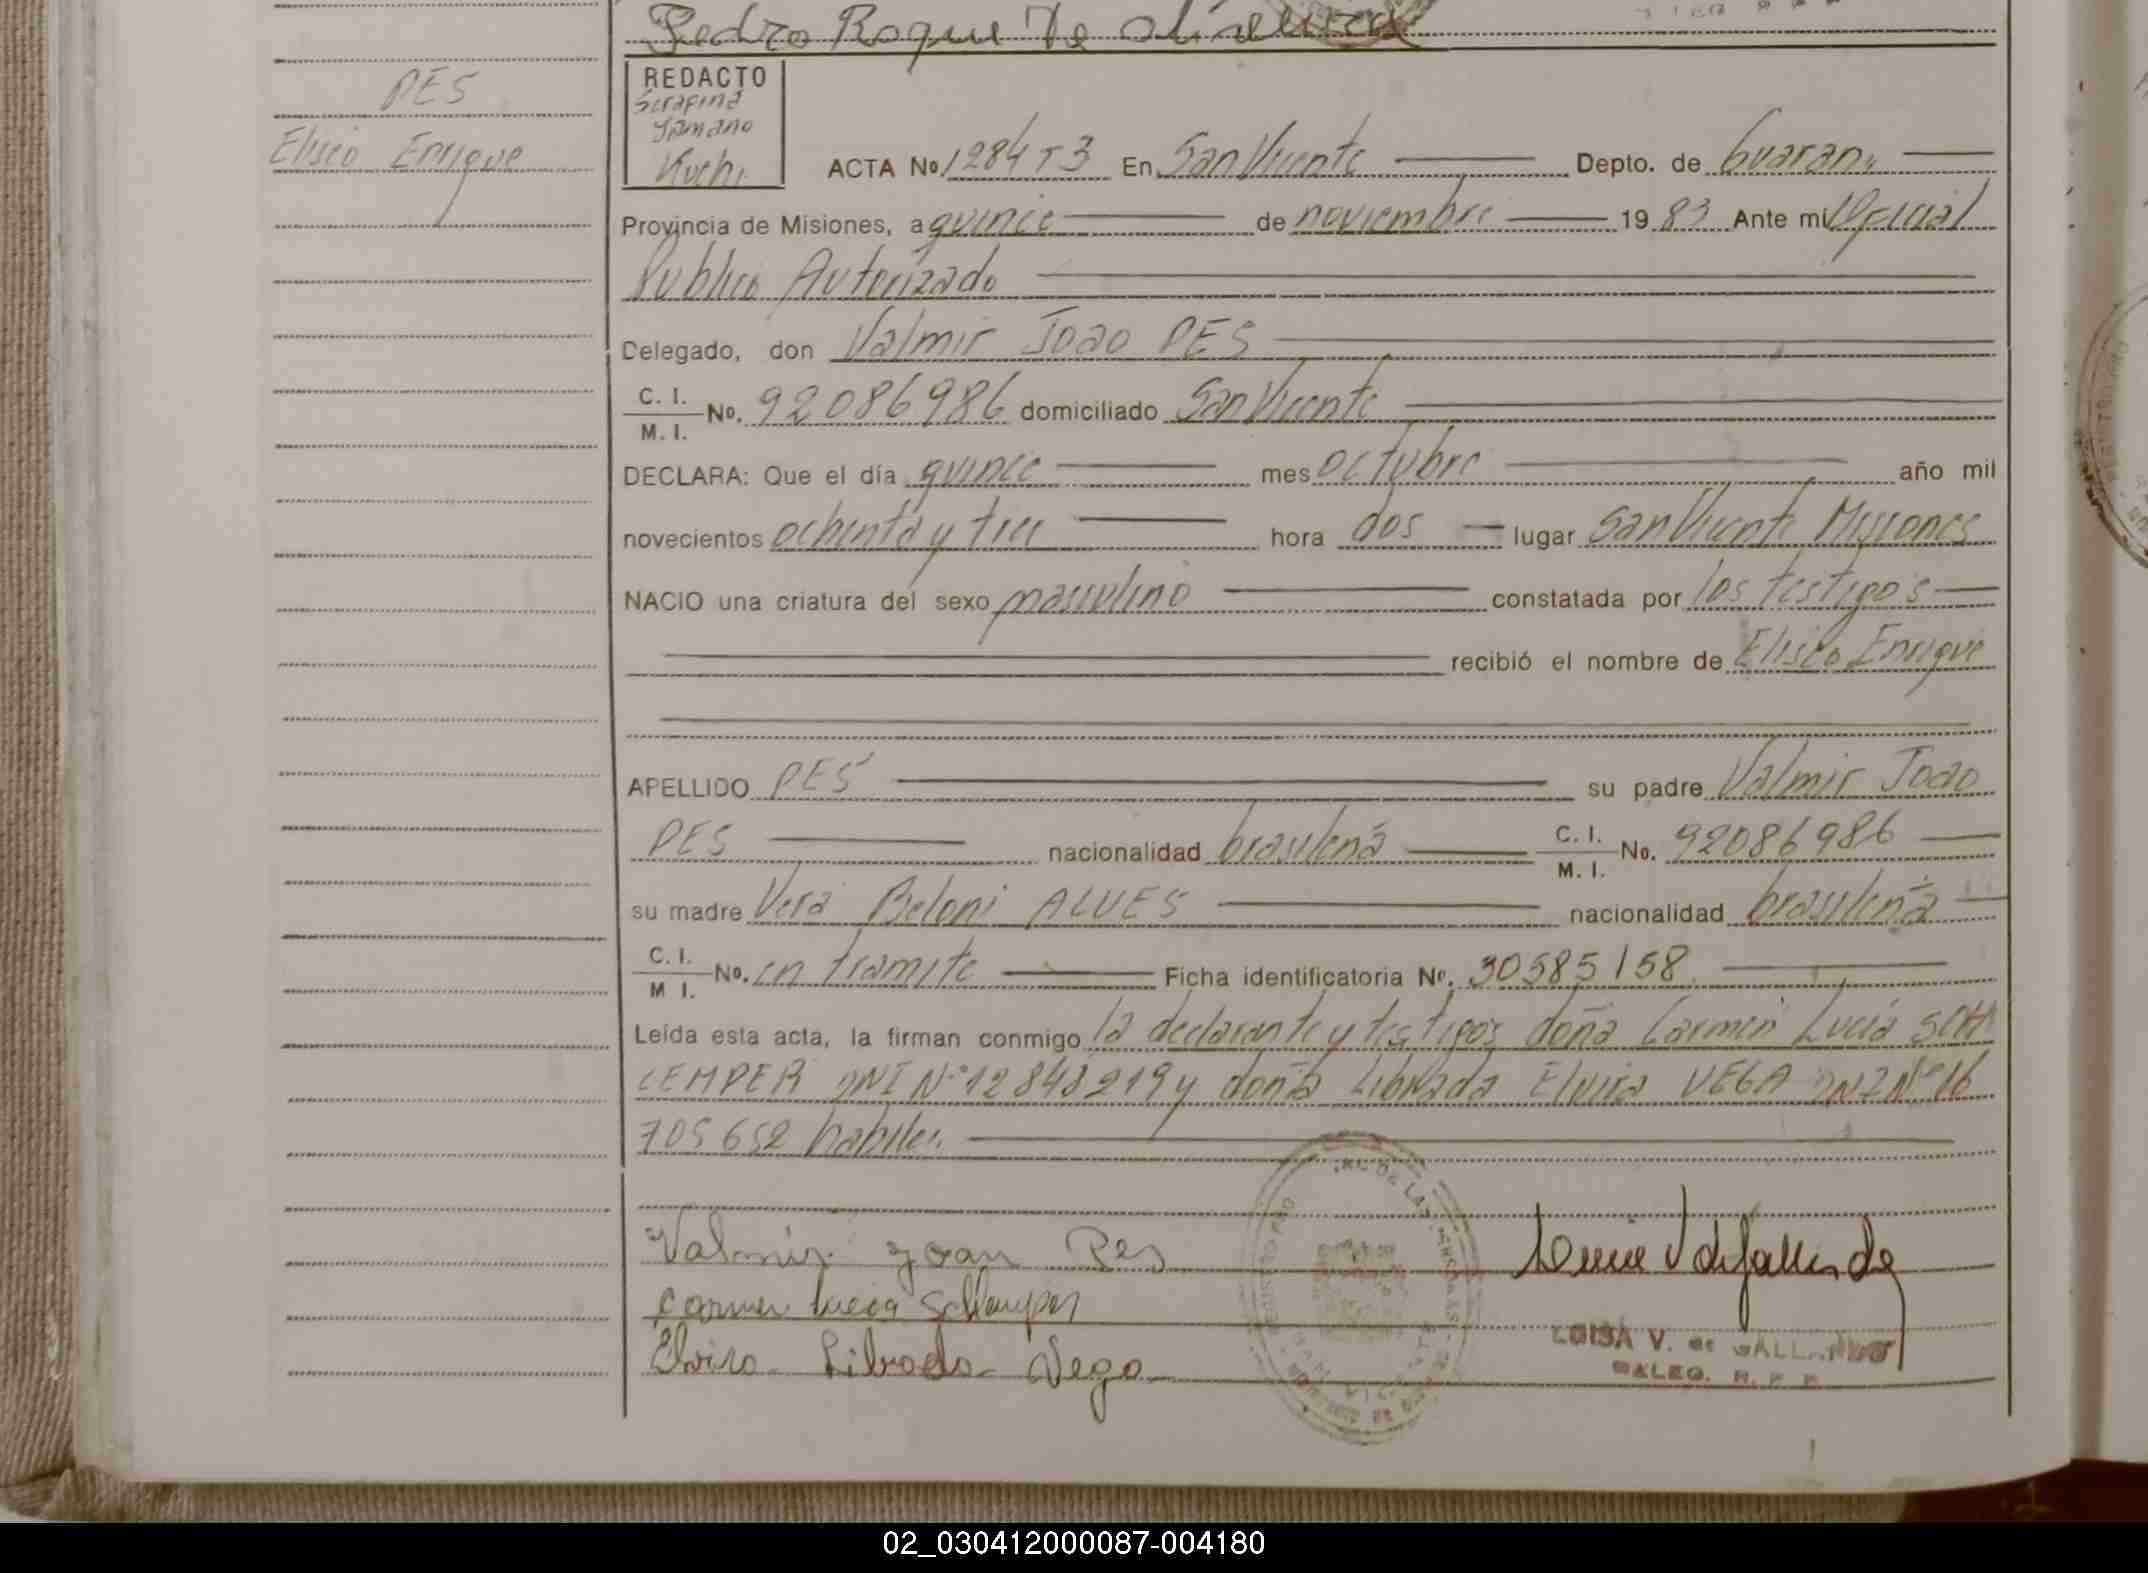 Pedro Roque De Oliveira
PES
Eliseo Enrique
REDACTO
Serafina
Kuchi
ACTA No. 1284 T 3 En San Vicente Depto. de Guarani
Provincia de Misiones, a quince de noviembre 19 83 Ante mi Oficial
Publico Autorizado
Delegado, don Valmir Joao PES
C. I.
M. I. No. 92086986 domiciliado San Vicente
DECLARA: Que el día quince mes octubre año mil
novecientos ochenta y tres hora dos lugar San Vicente Misiones
NACIO una criatura del sexo masculino constatada por los testigos
recibió el nombre de Eliseo Enrique
APELLIDO PES su padre Valmir Joao
PES nacionalidad brasileña C. I.
M. I. No. 92086986
su madre Vera Beloni ALVES nacionalidad brasileña
C. I.
M I. No. en tramite Ficha identificatoria No. 30585158
Leída esta acta, la firman conmigo la declarante y testigos doña Carmen Lucia SCHA
LEMPER DNI Nº 12848219 y doña Librada Elvira VEGA DNI Nº 16
705652 habiles.
Valmir Joan Pes
Carmen Lucia
Elvira Librada Vega
LUISA V. de GALLARDO
DALEG. R. P. P.
02_030412000087-004180